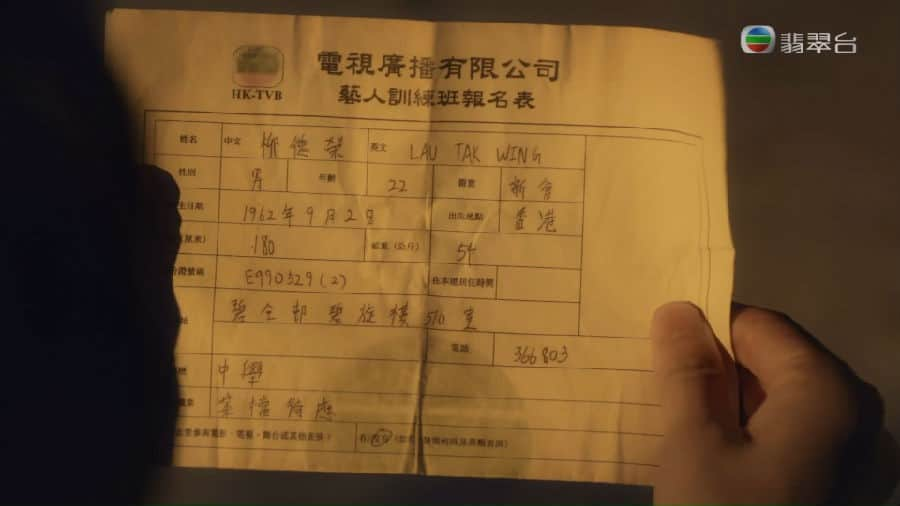 翡翠台
HK-TVB
電視廣播有限公司
藝人訓練班報名表
姓名 中文 柳德榮 英文 LAU TAK WING
性別 男 年齡 22 籍貫 新會
生日期 1962年9月2日 出生地點 香港
180 體重(公斤) 54
證號碼 E990329(2) 在本港居住時間
碧 邨碧 316室
電話 366803
中學
茶檔